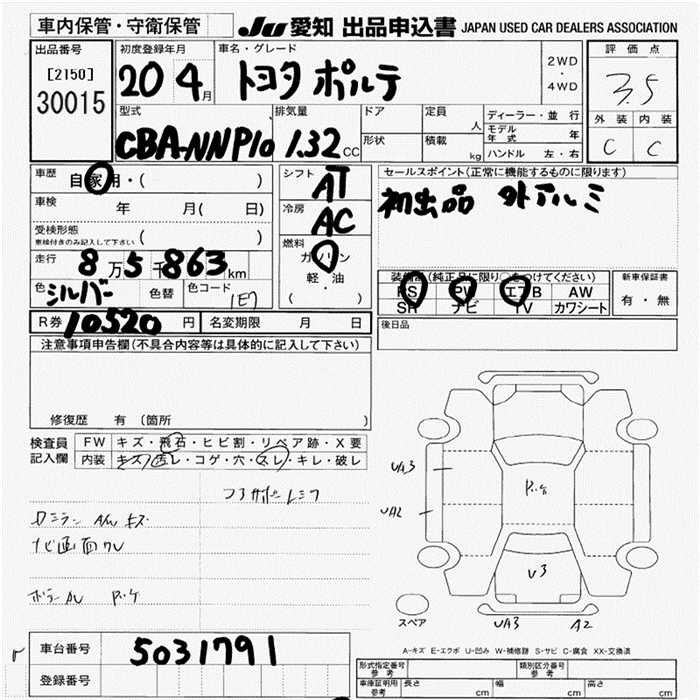 車内保管・守衛保管
JU 愛知 出品申込書 JAPAN USED CAR DEALERS ASSOCIATION
出品番号
[2150]
30015
初度登録年月
20 4月
車名・グレード
トヨタ ポルテ
2WD
・
4WD
評価点
3.5
外装 内装
C C
型式
CBA-NNP10
排気量
1.32 CC
ドア
形状
定員
人
積載
kg
ディーラー・並行
モデル年式 年
ハンドル 左・右
車歴
自家用・( )
車検 年 月( 日)
受検形態
車検付きのみ記入して下さい ( )
走行
8万5千863km
色 シルバー
色替
色コード
1E7
シフト
AT
冷房
AC
燃料
ガソリン
軽・油
( )
セールスポイント(正常に機能するものに限ります)
初出品 外アルミ
装備品(純正品に限り○をつけてください)
PS PW エアB AW
SR ナビ TV カワシート
新車保証書
有・無
後日品
R券 10520円
名変期限 月 日
注意事項申告欄(不具合内容等は具体的に記入して下さい)
修復歴 有 〔箇所 〕
検査員記入欄
FW キズ・飛石・ヒビ割・リペア跡・X要
内装 キズ・汚レ・コゲ・穴・スレ・キレ・破レ
ナビ画面
UA3
UA2
V3
UA3
A2
スペア
A-キズ E-エクボ U-凹み W-補修跡 S-サビ C-腐食 XX-交換済
車台番号 5031791
登録番号
形式指定番号
参考
類別区分番号
参考
車庫証明用
参考
長さ cm
幅 cm
高さ cm